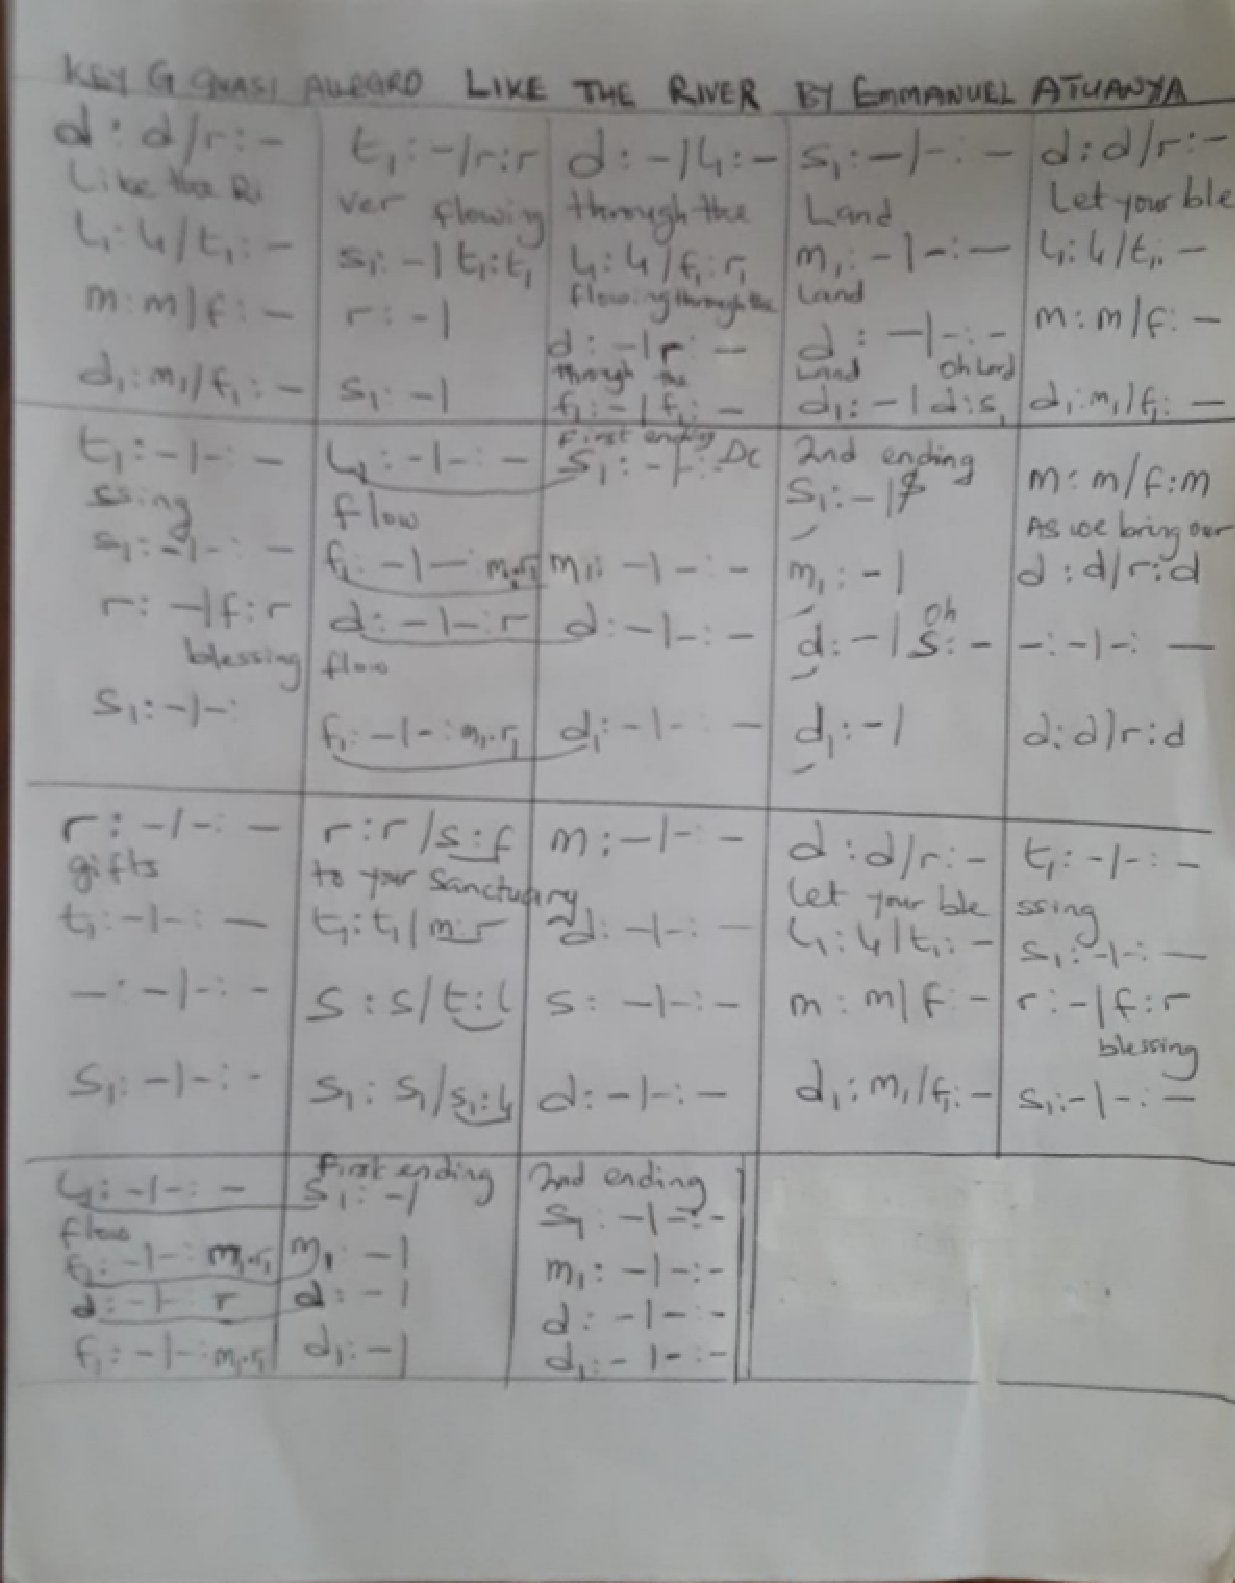 KEY G QUASI ALLEGRO LIKE THE RIVER BY EMMANUEL ATUANYA
d : d/r : - t₁ : -/r : r d : -/l₁ : - s₁ : -|- : - d : d/r : -
Like the Ri ver flowing through the Land Let your ble
l₁ : l₁/t₁ : - s₁ : -| t₁ : t₁ l₁ : l₁/f₁ : r₁ m₁ : -|- : - l₁ : l₁/t₁ : -
flowing through the Land
m : m/f : - r : -| d : -|r : - d : -|- : - m : m/f : -
through the Land Oh Lord
d₁ : m₁/f₁ : - s₁ : -| f₁ : -| f₁ : - d₁ : -| d : s₁ d₁ : m₁/f₁ : -
First ending 2nd ending
t₁ : -|- : - l₁ : -|- : - s₁ : -|- : DC s₁ : -| m : m/f : m
ssing flow As we bring our
s₁ : -|- : - f₁ : -|- m₁.r₁ m₁ : -|- : - m₁ : -| d : d/r : d
Oh
r : -|f : r d : -|- : r d : -|- : - d : -| s : - - : -|- : -
blessing flow
s₁ : -|- : f₁ : -|- : m₁.r₁ d₁ : -|- : - d₁ : -| d : d|r : d
r : -|- : - r : r /s : f m : -|- : - d : d/r : - t₁ : -|- : -
gifts to your Sanctuary let your ble ssing
t₁ : -|- : - t₁ : t₁| m : r d : -|- : - l₁ : l₁| t₁ : - s₁ : -|- : -
- : -|- : - s : s/t : l s : -|- : - m : m| f : - r : -|f : r
blessing
s₁ : -|- : - s₁ : s₁/s₁ : l₁ d : -|- : - d₁ : m₁/f₁ : - s₁ : -|- : -
First ending 2nd ending
l₁ : -|- : - s₁ : -| s₁ : -|- : -
flow
f₁ : -|- : m₁.r₁ m₁ : -| m₁ : -|- : -
d : -|- r d : -| d : -|- : -
f₁ : -|- : m₁.r₁ d₁ : -| d₁ : -|- : -